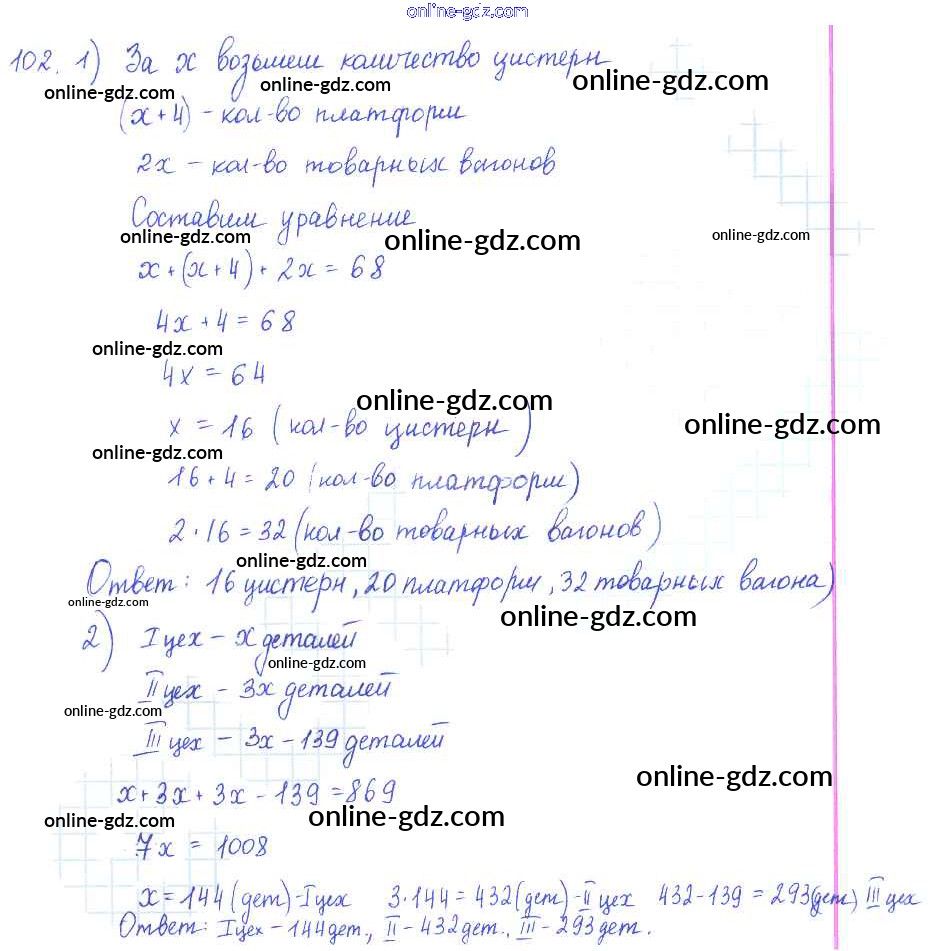 online-gdz.com
102. 1) За x возьмем количество цистерн
online-gdz.com online-gdz.com online-gdz.com
(x+4) - кол-во платформ
2x - кол-во товарных вагонов
Составим уравнение
online-gdz.com online-gdz.com online-gdz.com
x+(x+4)+2x=68
4x+4=68
online-gdz.com
4x=64
online-gdz.com
x=16 (кол-во цистерн)
online-gdz.com
online-gdz.com
16+4=20 (кол-во платформ)
2·16=32 (кол-во товарных вагонов)
online-gdz.com
Ответ: 16 цистерн, 20 платформ, 32 товарных вагона)
online-gdz.com online-gdz.com
2) I цех - x деталей
online-gdz.com
II цех - 3x деталей
online-gdz.com
III цех - 3x-139 деталей
online-gdz.com
x+3x+3x-139=869
online-gdz.com online-gdz.com
7x = 1008
x=144 (дет)-I цех 3·144=432 (дет)-II цех 432-139=293(дет) III цех
Ответ: I цех - 144 дет., II - 432 дет., III - 293 дет.